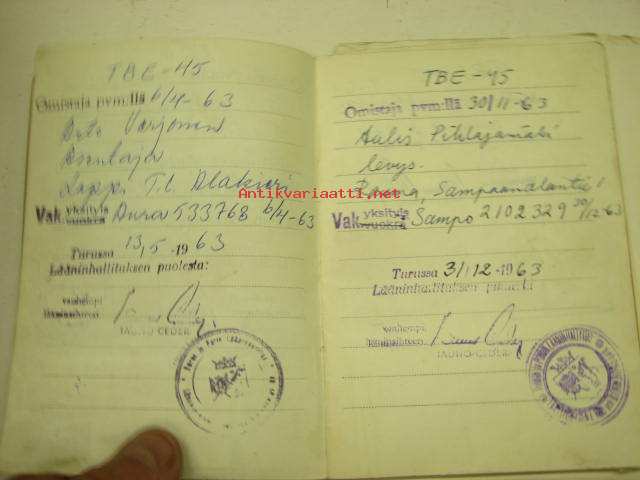 TBE-45
Omistaja pvm:llä 6/4-63
Varjonen
Lapp. T.l.
Vak. yksityis Aura 533768 6/4-63
vuokra
Turussa 13,5-1963
Lääninhallituksen puolesta:
vanhempi
TAUNO CEDER
TBE-45
Omistaja pvm:llä 30/11-63
Aulis Pihlajamäki
levys.
Rauma, Sampaanalantie 1
Vak. yksityis Sampo 2102329 30/12 63
vuokra
Turussa 31/12-1963
Lääninhallituksen
vanhempi
TAUNO CEDER
Antikvariaatti.net